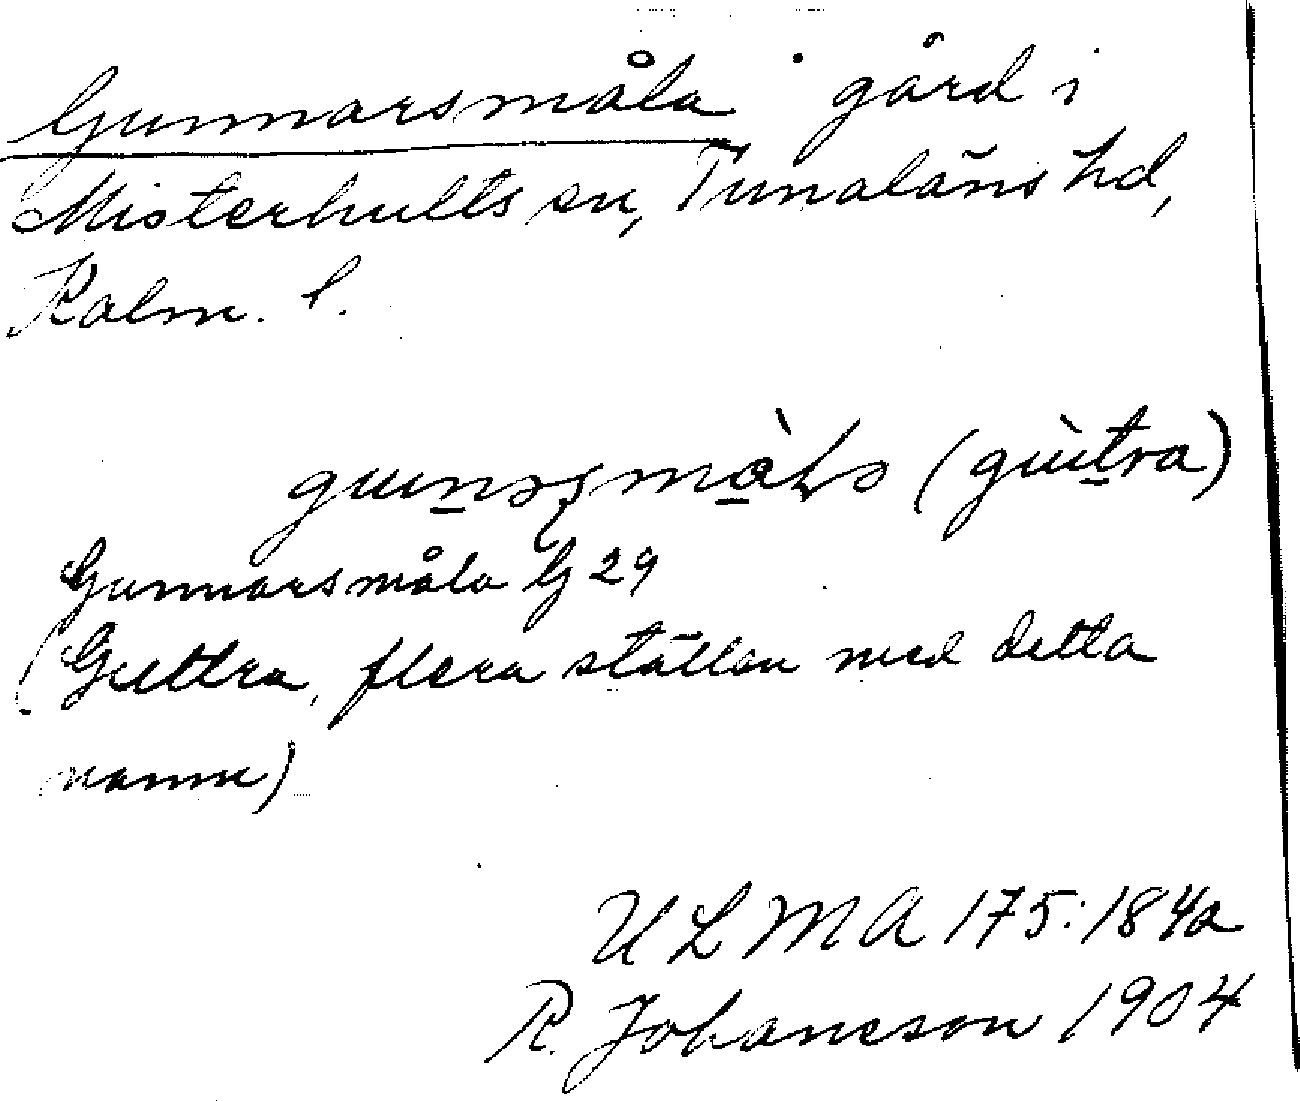 Gunnarsmåla gård i
Misterhults sn, Tunaläns hd,
Kalm. l.
(gùtra)
Gunnarsmåla G 29
(Guttra, flera ställen med detta
namn)
ULMA 175:184a
R. Johanson 1904